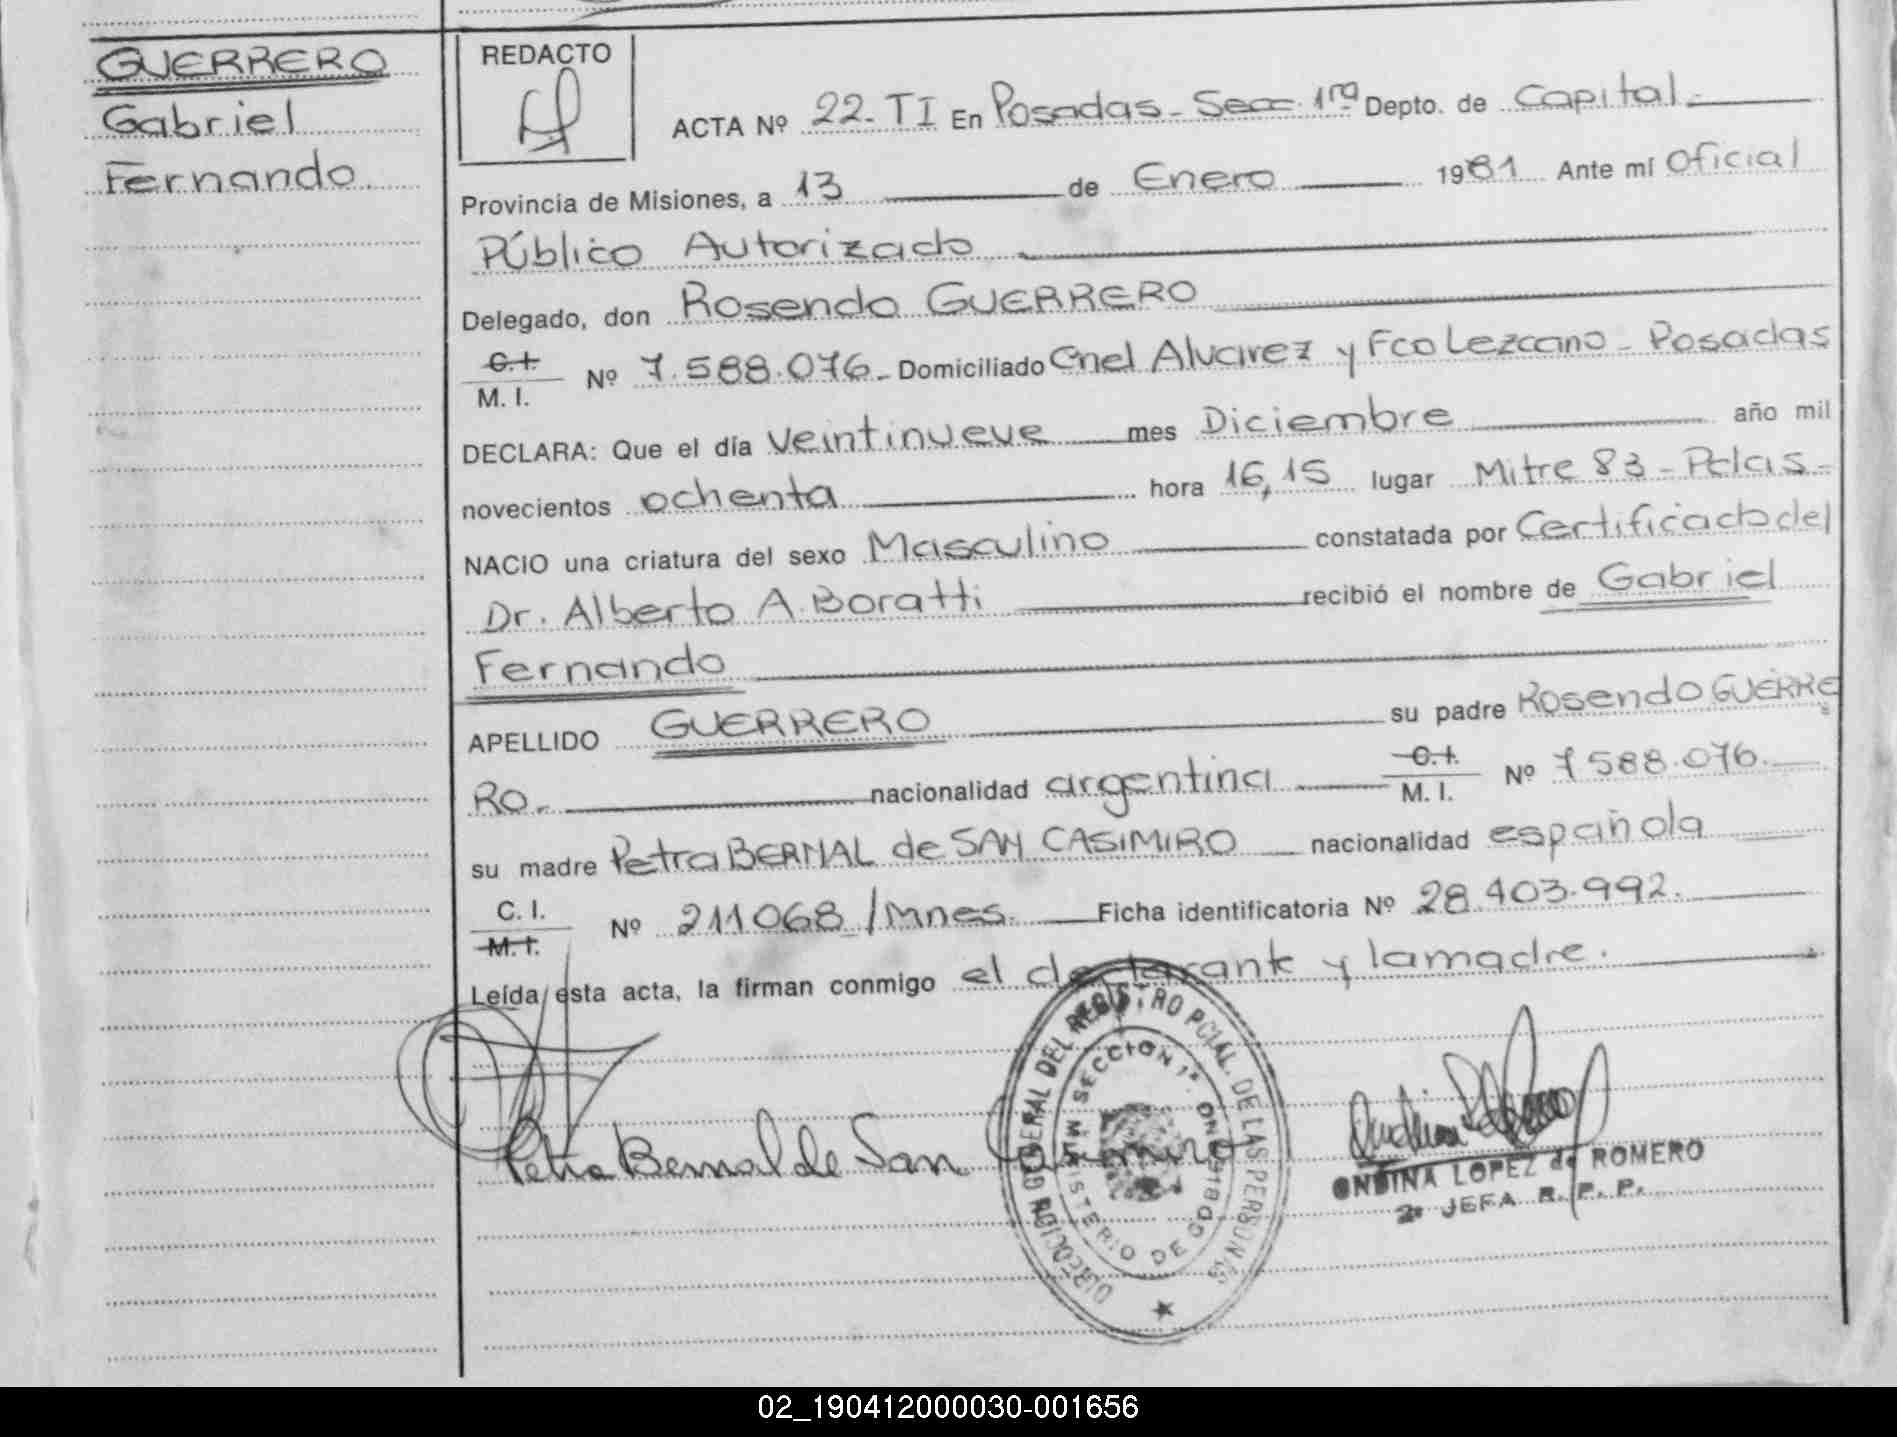 GUERRERO
Gabriel
Fernando.
REDACTO
ACTA Nº 22-TI En Posadas - Secc. 1ra Depto. de Capital
Provincia de Misiones, a 13 de Enero 1981 Ante mí Oficial
Público Autorizado
Delegado, don Rosendo GUERRERO
C.I. M.I. Nº 7.588.076 - Domiciliado Cnel Alvarez y Fco Lezcano - Posadas
DECLARA: Que el día veintinueve mes Diciembre año mil
novecientos ochenta hora 16,15 lugar Mitre 83 - Pdas -
NACIO una criatura del sexo Masculino constatada por Certificado del
Dr. Alberto A. Boratti recibió el nombre de Gabriel
Fernando
APELLIDO GUERRERO su padre Rosendo GUERRE
RO.- nacionalidad argentina C.I. M.I. Nº 7588.076.
su madre Petra BERNAL de SAN CASIMIRO nacionalidad española
C.I. M.I. Nº 211068/Mnes. Ficha identificatoria Nº 28.403.992.
Leída esta acta, la firman conmigo el declarante y la madre.
Petra Bernal de San Casimiro
DIRECCION GENERAL DEL REGISTRO PCIAL. DE LAS PERSONAS
SECCION 1ª
MINISTERIO DE GOBIERNO
ONDINA LOPEZ de ROMERO
2ª JEFA R. P. P.
02_190412000030-001656